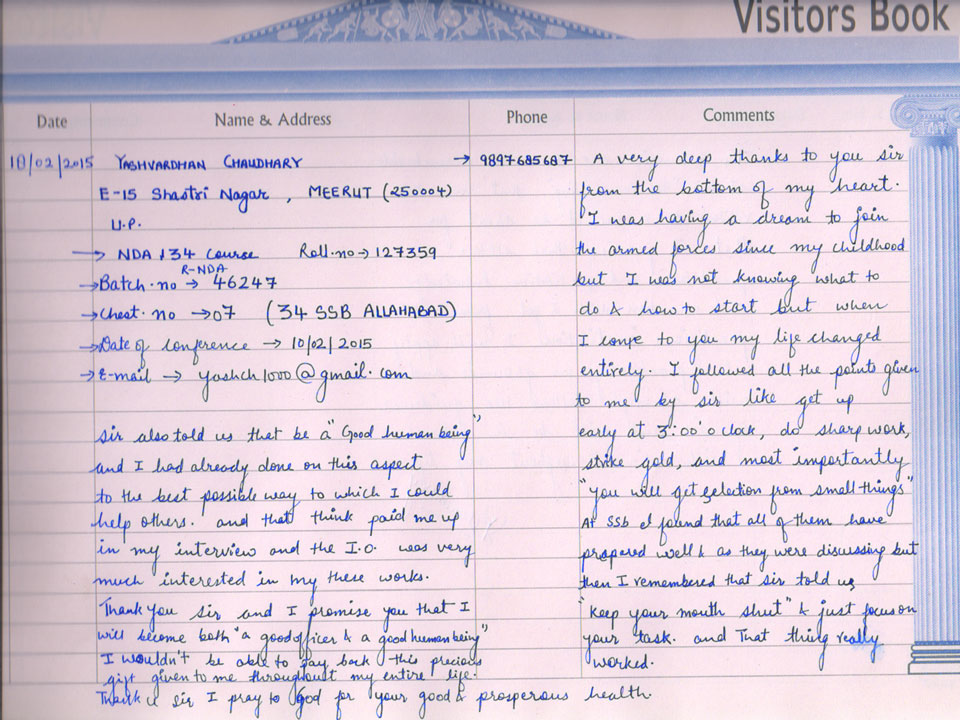 Visitors Book
Date
Name & Address
Phone
Comments
10/02/2015
YASHVARDHAN CHAUDHARY
→ 9897685687
E-15 Shastri Nagar, MEERUT (250004)
U.P.
→ NDA 134 Course Roll.no → 127359
R-NDA
→ Batch.no → 46247
→ Chest.no → 07 (34 SSB ALLAHABAD)
→ Date of conference → 10/02/2015
→ E-mail → yashch1000@gmail.com
A very deep thanks to you sir
from the bottom of my heart.
I was having a dream to join
the armed forces since my childhood
but I was not knowing what to
do & how to start but when
I come to you my life changed
entirely. I followed all the points given
to me by sir like get up
early at 3:00'o clock, do sharp work,
strike gold, and most importantly
"you will get selection from small things"
At SSb I found that all of them have
prepared well & as they were discussing but
then I remembered that sir told us
"keep your mouth shut" & just focus on
your task. and That thing really
worked.
sir also told us that be a "Good human being"
and I had already done on this aspect
to the best possible way to which I could
help others. and that think paid me up
in my interview and the I.O. was very
much interested in my these works.
Thank you sir and I promise you that I
will become both "a good officer & a good human being"
I wouldn't be able to pay back this precious
gift given to me throughout my entire life.
Thank u sir I pray to God for your good & prosperous health.